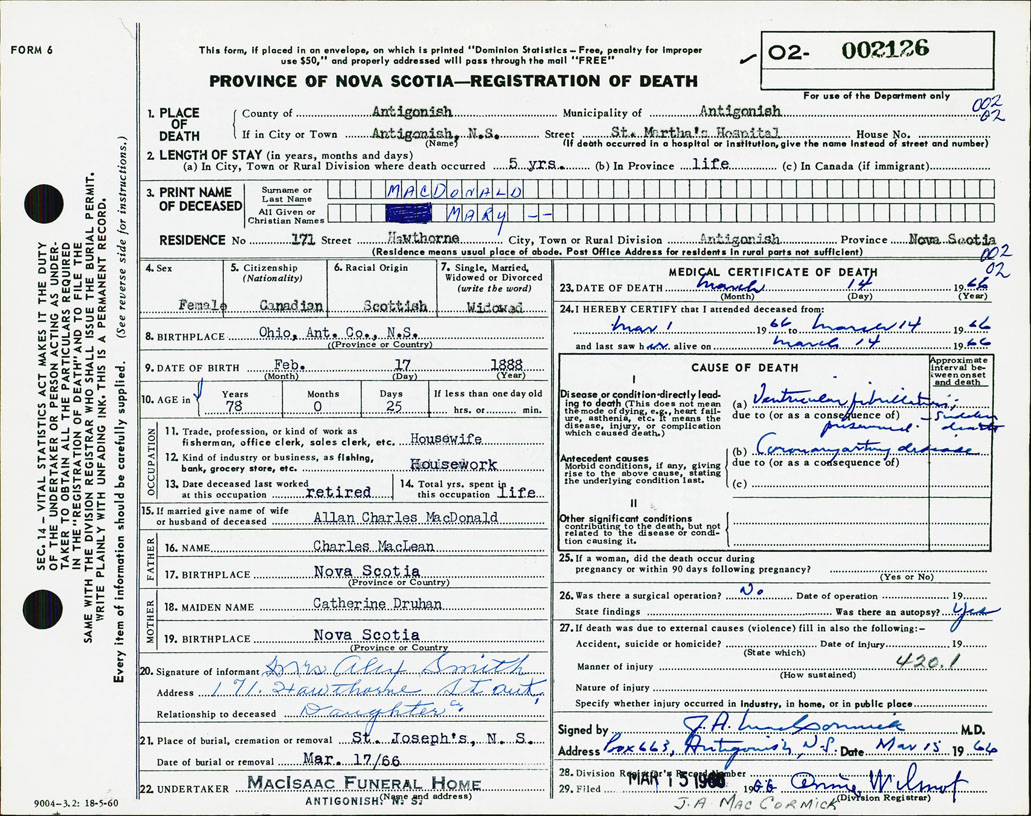 FORM 6
This form, if placed in an envelope, on which is printed "Dominion Statistics – Free, penalty for improper
use $50," and properly addressed will pass through the mail "FREE"
PROVINCE OF NOVA SCOTIA—REGISTRATION OF DEATH
02- 002126
For use of the Department only
002
02
1. PLACE OF DEATH
County of Antigonish Municipality of Antigonish
If in City or Town Antigonish, N.S. Street St. Martha's Hospital House No.
(Name) (If death occurred in a hospital or institution, give the name instead of street and number)
2. LENGTH OF STAY (in years, months and days)
(a) In City, Town or Rural Division where death occurred 5 yrs. (b) In Province life (c) In Canada (if immigrant)
3. PRINT NAME OF DECEASED
Surname or Last Name MACDONALD
All Given or Christian Names MARY --
RESIDENCE No 171 Street Hawthorne City, Town or Rural Division Antigonish Province Nova Scotia
(Residence means usual place of abode. Post Office Address for residents in rural parts not sufficient)
002
02
4. Sex Female
5. Citizenship (Nationality) Canadian
6. Racial Origin Scottish
7. Single, Married, Widowed or Divorced (write the word) Widowed
8. BIRTHPLACE Ohio, Ant. Co., N.S.
((Province or County)
9. DATE OF BIRTH Feb. 17 1888
(Month) (Day) (Year)
10. AGE in Years 78 Months 0 Days 25 If less than one day old hrs. or min.
OCCUPATION
11. Trade, profession, or kind of work as
fisherman, office clerk, sales clerk, etc. Housewife
12. Kind of industry or business, as fishing,
bank, grocery store, etc. Housework
13. Date deceased last worked
at this occupation retired
14. Total yrs. spent in
this occupation life
15. If married give name of wife
or husband of deceased Allan Charles MacDonald
FATHER
16. NAME Charles MacLean
17. BIRTHPLACE Nova Scotia
(Province or Country)
MOTHER
18. MAIDEN NAME Catherine Druhan
19. BIRTHPLACE Nova Scotia
(Province or Country)
20. Signature of informant Mrs Alex Smith
Address 171 Hawthorne St ant
Relationship to deceased Daughter
21. Place of burial, cremation or removal St. Joseph's, N. S.
Date of burial or removal Mar. 17/66
22. UNDERTAKER MACISAAC FUNERAL HOME
(Name and address)
ANTIGONISH, N. S.
9004-3.2: 18-5-60
MEDICAL CERTIFICATE OF DEATH
23. DATE OF DEATH March 14 1966
(Month) (Day) (Year)
24. I HEREBY CERTIFY that I attended deceased from:
Mar 1 1966 to March 14 1966
and last saw her alive on March 14 1966
CAUSE OF DEATH
Approximate interval between onset and death
I
Disease or condition directly leading to death (This does not mean the mode of dying, e.g., heart failure, asthenia, etc. It means the disease, injury, or complication which caused death.)
(a) Ventricular fibrillation,
due to (or as a consequence of) presumed - sudden death
Antecedent causes
Morbid conditions, if any, giving rise to the above cause, stating the underlying condition last.
(b) Coronary artery disease
due to (or as a consequence of)
(c)
II
Other significant conditions
contributing to the death, but not related to the disease or condition causing it.
25. If a woman, did the death occur during
pregnancy or within 90 days following pregnancy?
(Yes or No)
26. Was there a surgical operation? No Date of operation 19
State findings Was there an autopsy? Yes
27. If death was due to external causes (violence) fill in also the following:–
Accident, suicide or homicide? Date of injury 19
(State which)
420.1
Manner of injury
(How sustained)
Nature of injury
Specify whether injury occurred in industry, in home, or in public place
Signed by J.A. MacCormick M.D.
Address Box 663, Antigonish, N.S. Date Mar 15 1966
28. Division Registrar's Record Number
29. Filed MAR 15 1966 1966 Wilmot
(Division Registrar)
J. A MACCORMICK
SEC. 14 – VITAL STATISTICS ACT MAKES IT THE DUTY
OF THE UNDERTAKER OR PERSON ACTING AS UNDER-
TAKER TO OBTAIN ALL THE PARTICULARS REQUIRED
IN THE "REGISTRATION OF DEATH" AND TO FILE THE
SAME WITH THE DIVISION REGISTRAR WHO SHALL ISSUE THE BURIAL PERMIT.
WRITE PLAINLY WITH UNFADING INK. THIS IS A PERMANENT RECORD.
Every item of information should be carefully supplied. (See reverse side for instructions.)